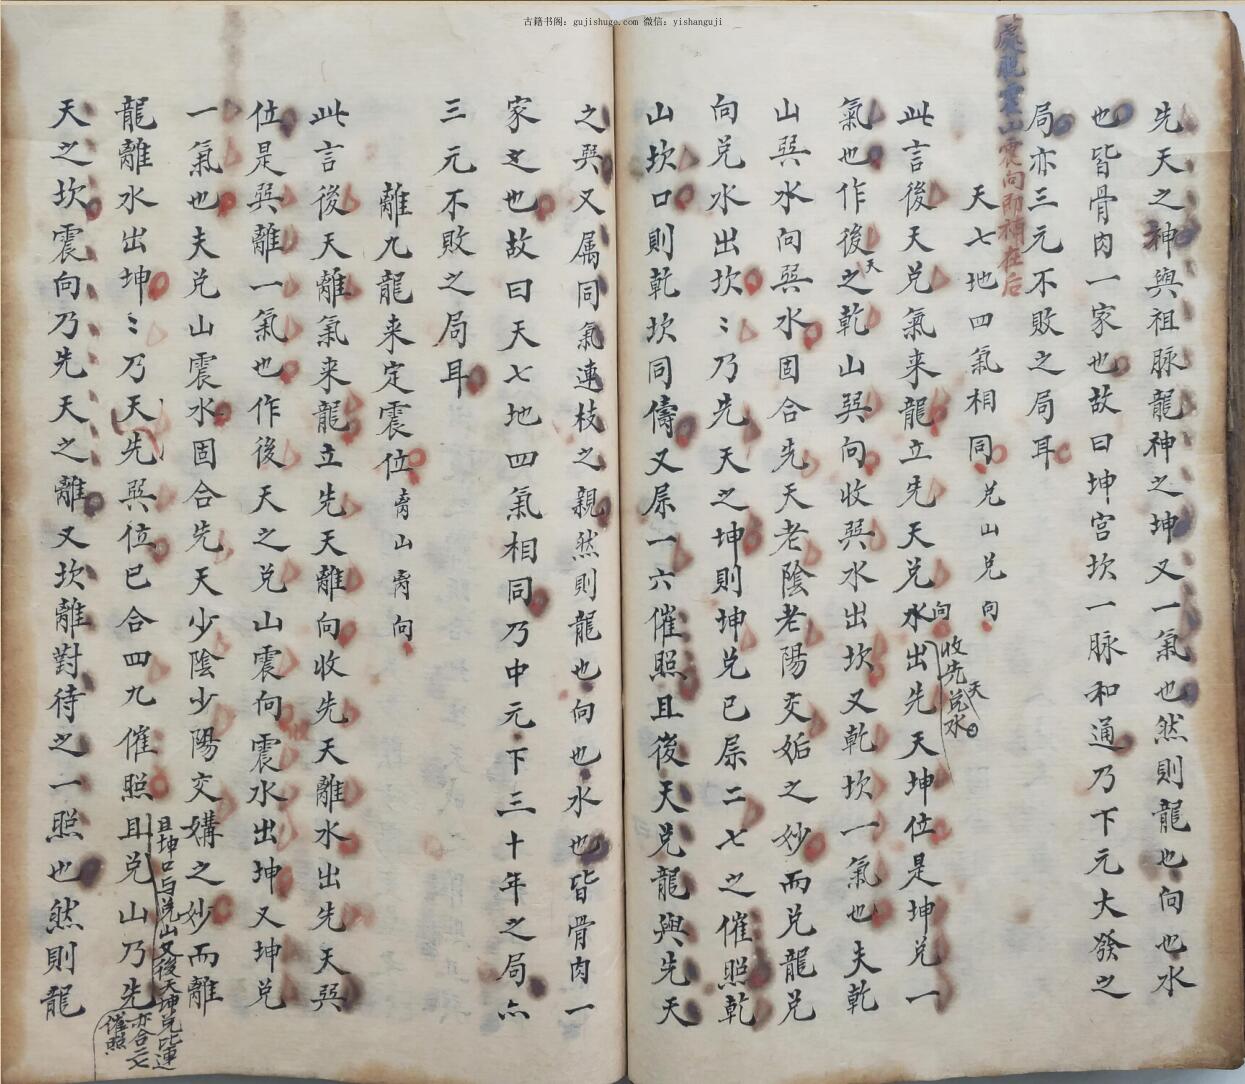 古籍书阁：gujishuge.com 微信：yishanguji
先天之神與祖脉龍神之坤又一氣也然則龍也向也水
也皆骨肉一家也故曰坤宫坎一脉和通乃下元大發之
局亦三元不敗之局耳
震山震向而神在后
天七地四氣相同兑山兑向
此言後天兑氣来龍立先天兑水出先天坤位是坤兑一
向收先天兑水
氣也作後天之乾山巽向收巽水出坎又乾坎一氣也夫乾
山巽水向巽水固合先天老陰老陽交姤之妙而兑龍兑
向兑水出坎〻乃先天之坤則坤兑已屎二七之催照乾
山坎口則乾坎同儔又屎一六催照且後天兑龍與先天
之巽又属同氣連枝之親然則龍也向也水也皆骨肉一
家之也故曰天七地四氣相同乃中元下三十年之局亦
三元不敗之局耳
離九龍来定震位离山离向
此言後天離氣来龍立先天離向收先天離水出先天巽
位是巽離一氣也作後天之兑山震向收震水出坤又坤兑
一氣也夫兑山震水固合先天少陰少陽交媾之妙而離
龍離水出坤〻乃天先巽位已合四九催照且兑山乃先
且坤口与兑山又後天坤兑皆連亦合二七催照
天之坎震向乃先天之離又坎離對待之一照也然則龍